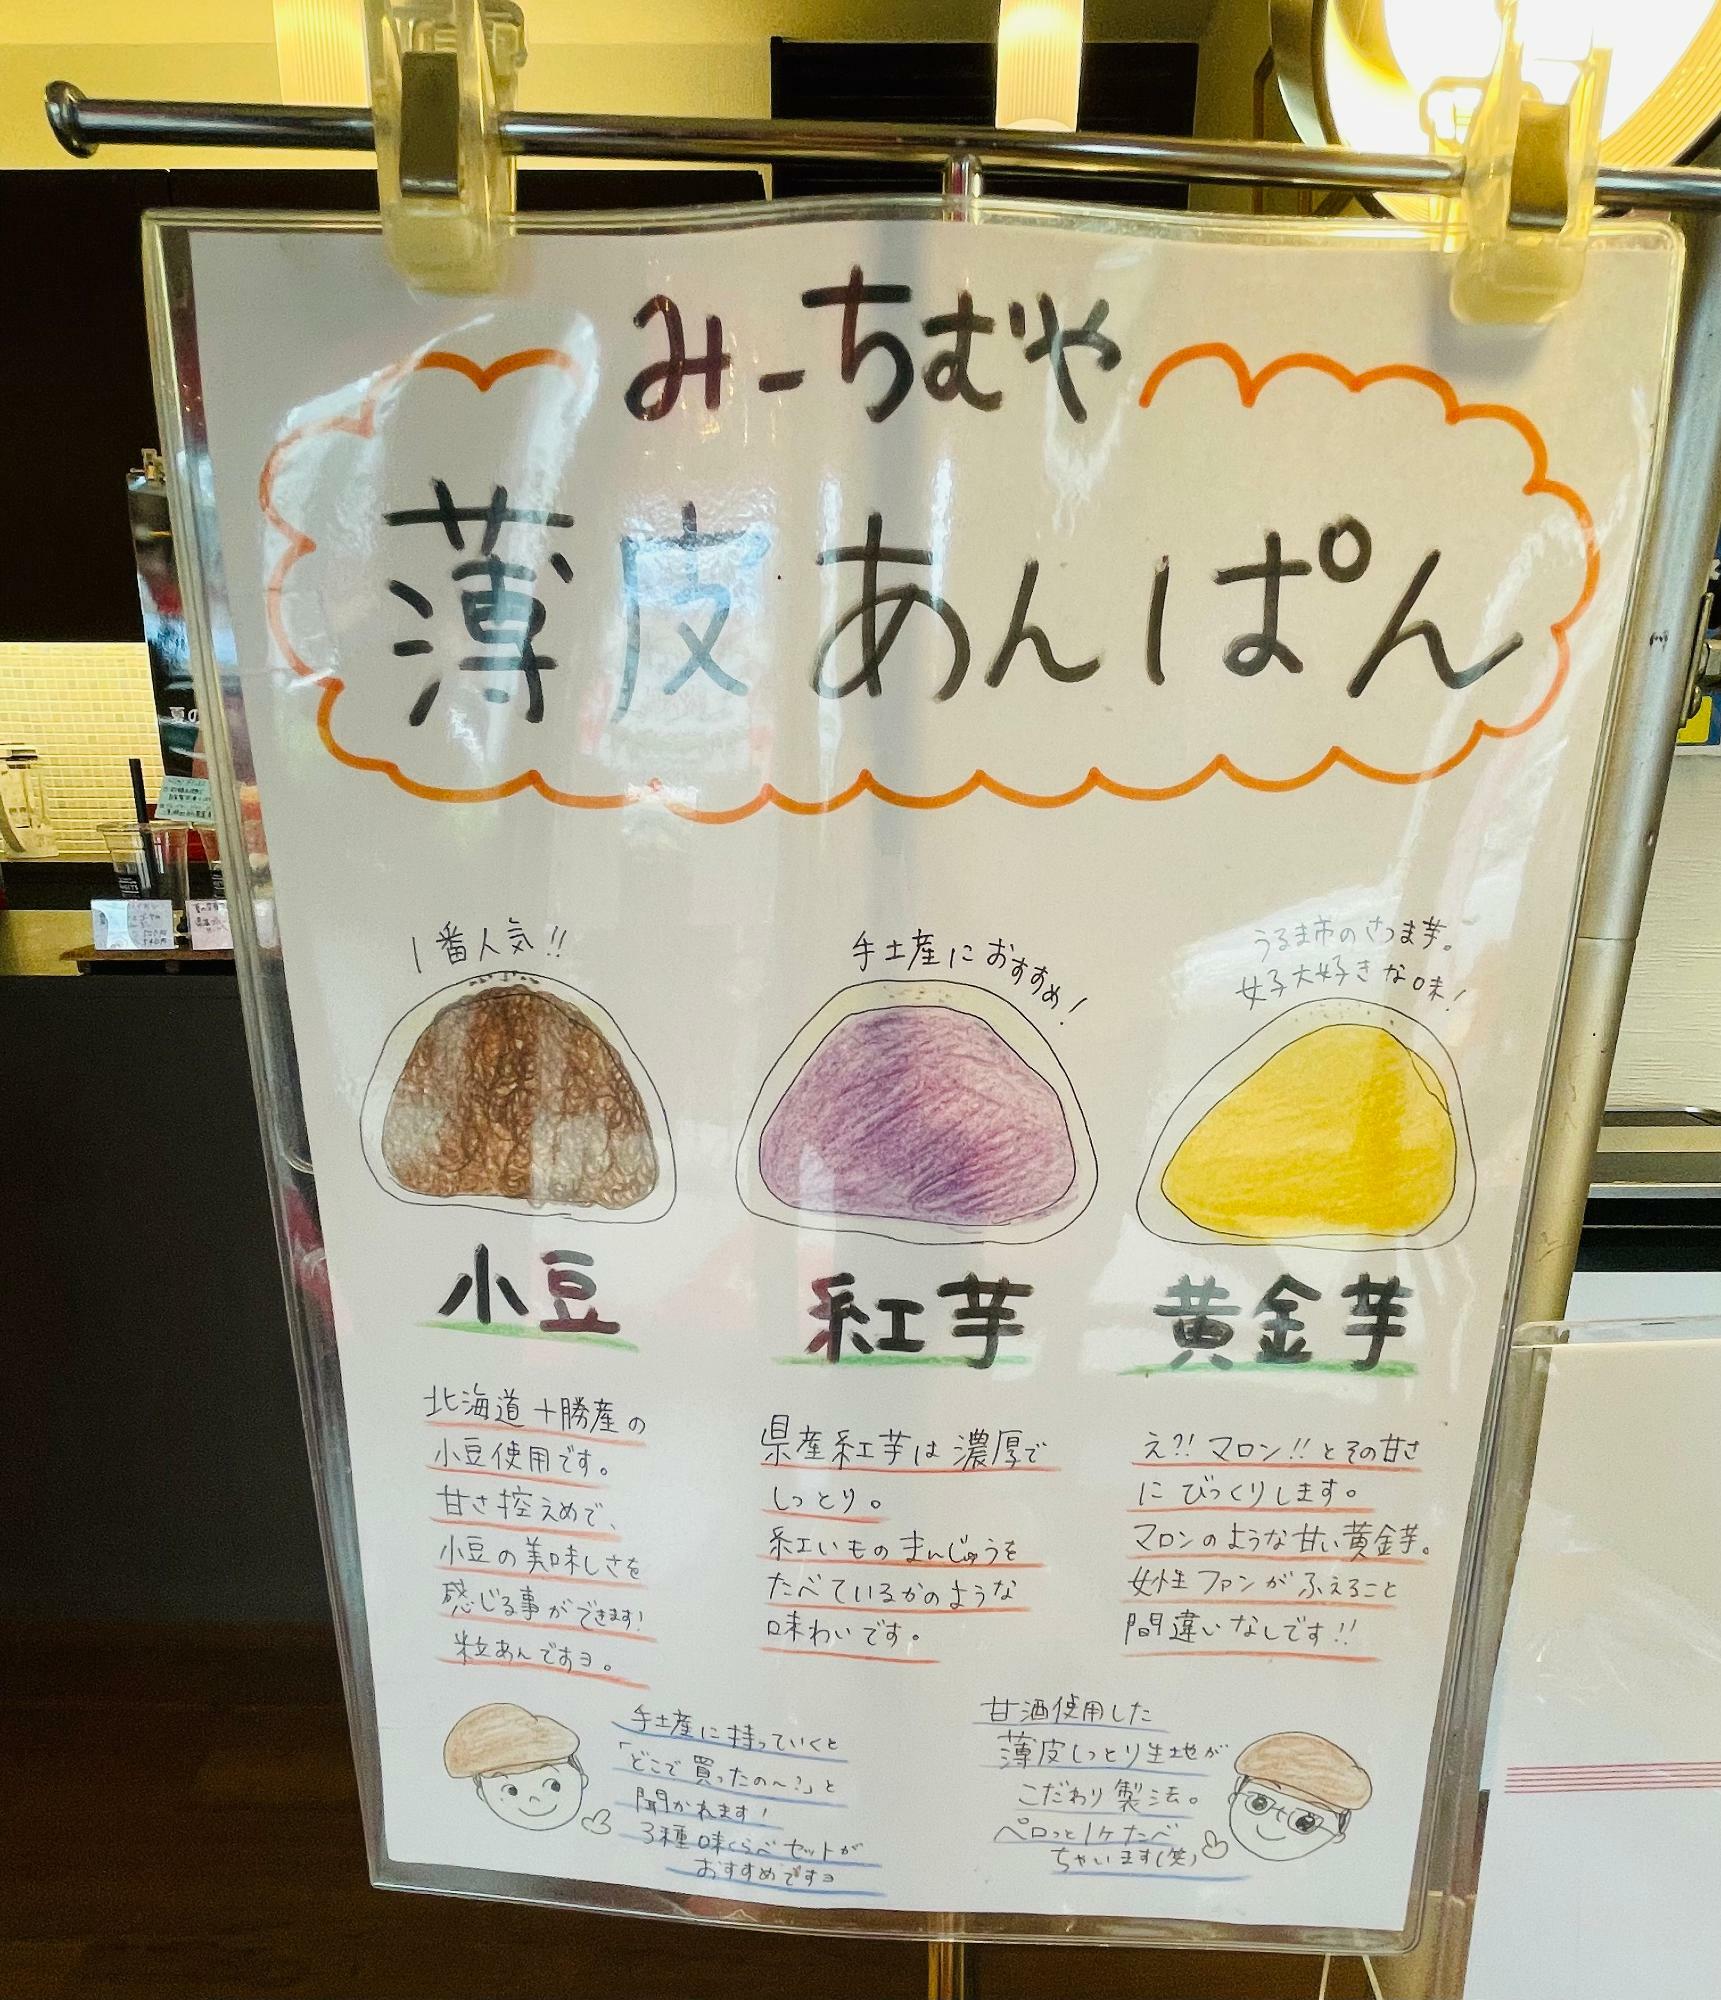 みーちむや
薄皮あんぱん
1番人気!!
手土産におすすめ!
うるま市のさつま芋。
女子大好きな味!
小豆
紅芋
黄金芋
北海道十勝産の
小豆使用です。
甘さ控えめで、
小豆の美味しさを
感じる事ができます!
粒あんですヨ。
県産紅芋は濃厚で
しっとり。
紅いものまんじゅうを
たべているかのような
味わいです。
え?!マロン!!とその甘さ
にびっくりします。
マロンのような甘い黄金芋。
女性ファンがふえること
間違いなしです!!
手土産に持っていくと
「どこで買ったの〜?」と
聞かれます!
3種味くらべセットが
おすすめですヨ
甘酒使用した
薄皮しっとり生地が
こだわり製法。
ペロっと1ケたべ
ちゃいます(笑)